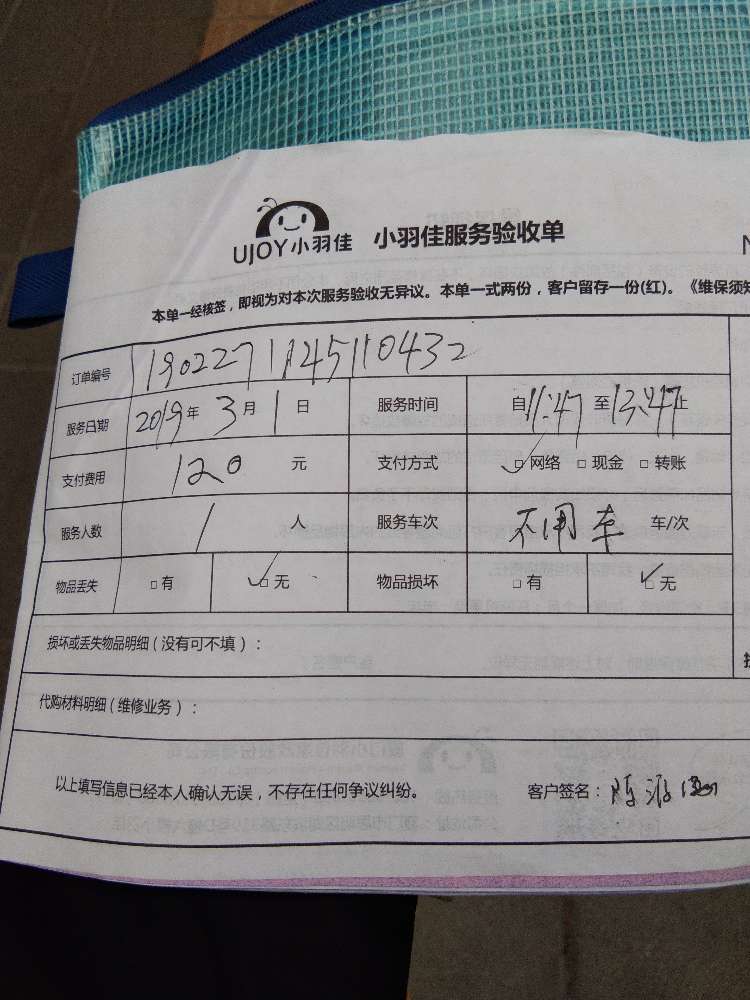 UJOY小羽佳 小羽佳服务验收单
本单一经核签，即视为对本次服务验收无异议。本单一式两份，客户留存一份(红)。《维保须知
订单编号 1902271145110432
服务日期 2019年3月1日 服务时间 自11:47至13:47止
支付费用 120元 支付方式 □网络 □现金 □转账
服务人数 1人 服务车次 不用车 车/次
物品丢失 □有 □无 物品损坏 □有 □无
损坏或丢失物品明细（没有可不填）：
代购材料明细（维修业务）：
以上填写信息已经本人确认无误，不存在任何争议纠纷。 客户签名：陈